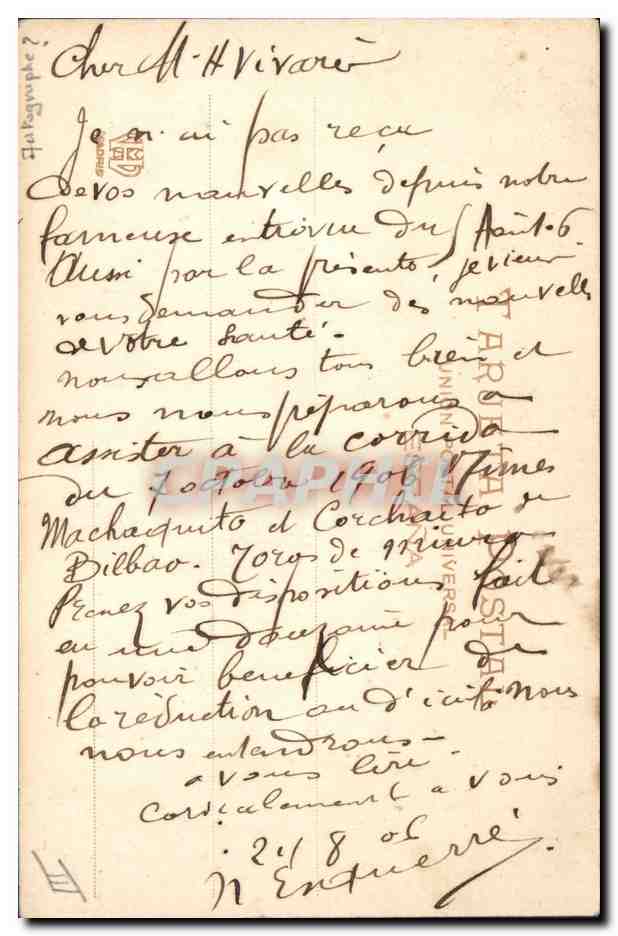 Autographe?
Cher M. H Vivarès
Je n'ai pas reçu
de vos nouvelles depuis notre
fameuse entrevue du 5 Août 6
Aussi par la présente, je viens
vous demander des nouvelles
de votre santé.
nous allons tous bien et
nous nous préparons a
assister à la corrida
du 7 octobre 1906 Nimes
Machaquito et Corchaito de
Bilbao. Toros de Miura
Prenez vos dispositions fait
en une douzaine pour
pouvoir beneficier de
la réduction ou d'ici là nous
nous entendrons -
a vous lire
cordialement a vous
8 06
TARJETA POSTAL
UNION POSTAL UNIVERSAL
ESPAÑA
MADRID
CPARAMA
III